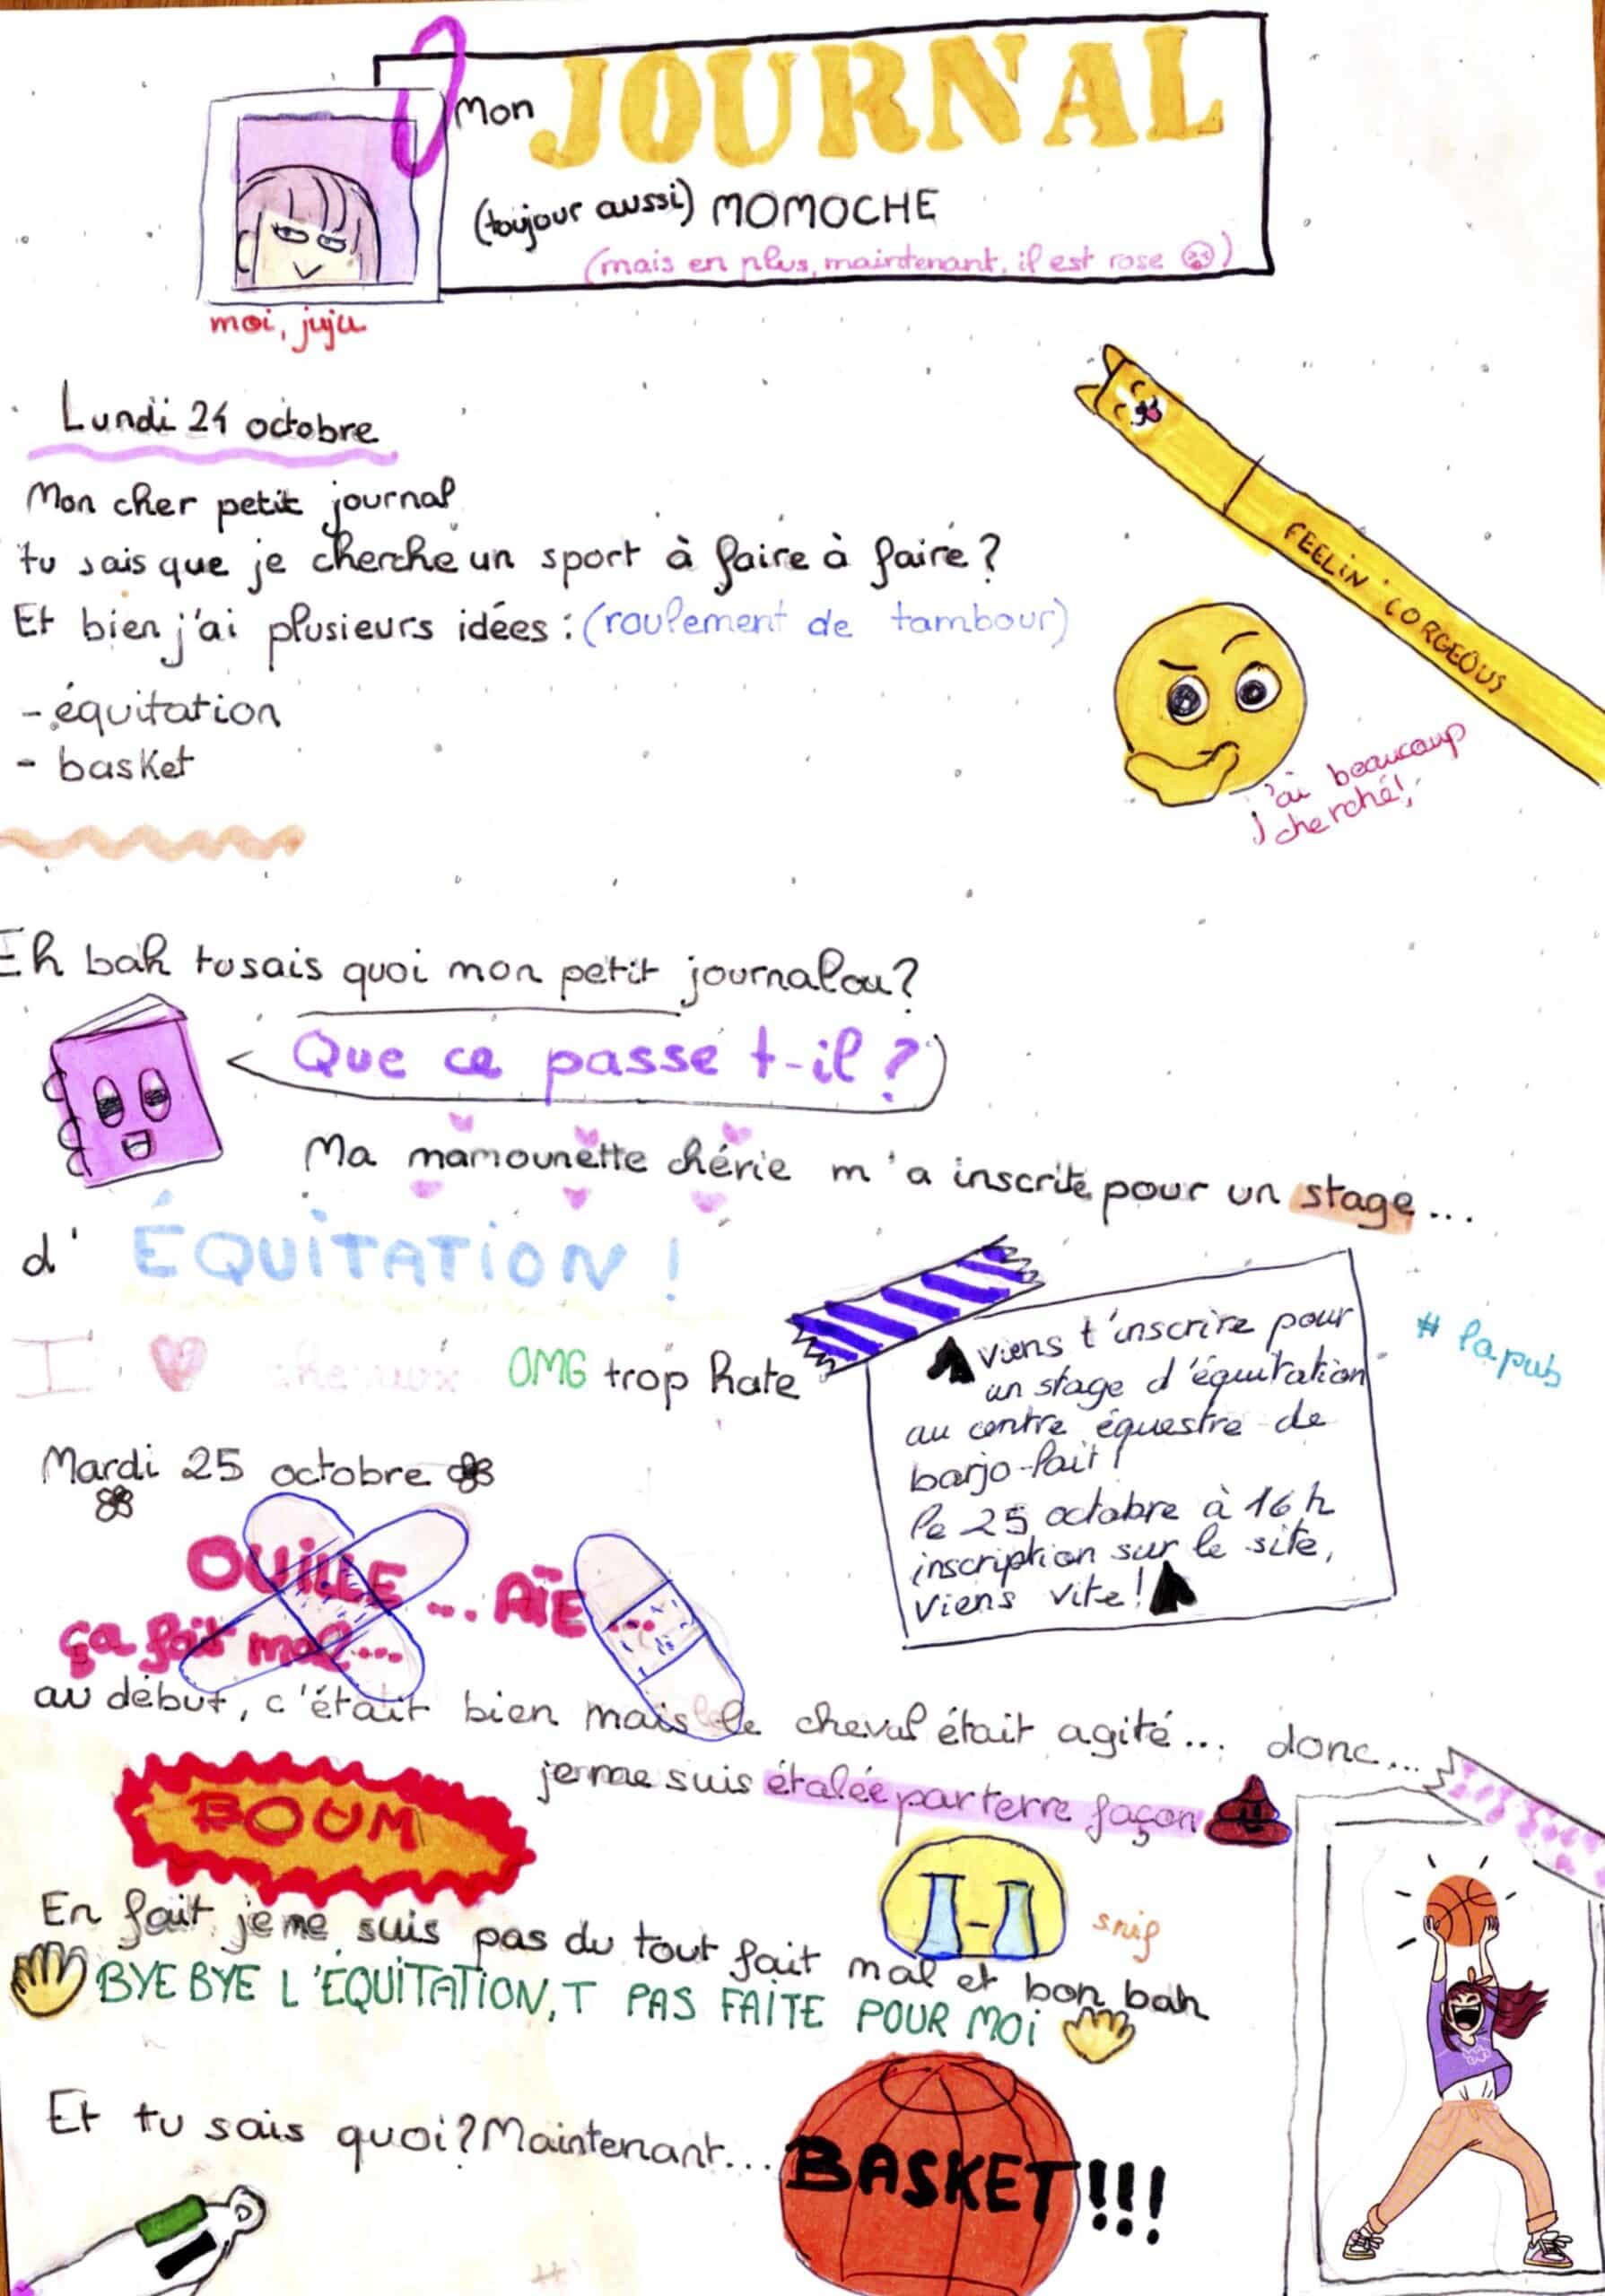 Mon JOURNAL
(toujour aussi) MOMOCHE
(mais en plus, maintenant, il est rose)
moi, juju
Lundi 24 octobre
Mon cher petit journal
tu sais que je cherche un sport à faire à faire?
Et bien j'ai plusieurs idées : (roulement de tambour)
- équitation
- basket
FEELIN' CORGEOUS
j'ai beaucoup
cherché!
Eh bah tu sais quoi mon petit journalou?
Que ce passe t-il ?
Ma mamounette chérie m'a inscrite pour un stage...
d' ÉQUITATION !
I chevaux OMG trop hate
Viens t'inscrire pour
un stage d'équitation
au centre équestre de
barjo-fait!
le 25 octobre à 16 h
inscription sur le site,
viens vite!
# la pub
Mardi 25 octobre
OUILLE ... AÏE ...
ça fait mal...
au début, c'était bien mais le cheval était agité... donc...
je me suis étalée par terre façon
BOUM
snif
En fait je me suis pas du tout fait mal et bon bah
BYE BYE L'ÉQUITATION, T PAS FAITE POUR MOI
Et tu sais quoi? Maintenant... BASKET!!!